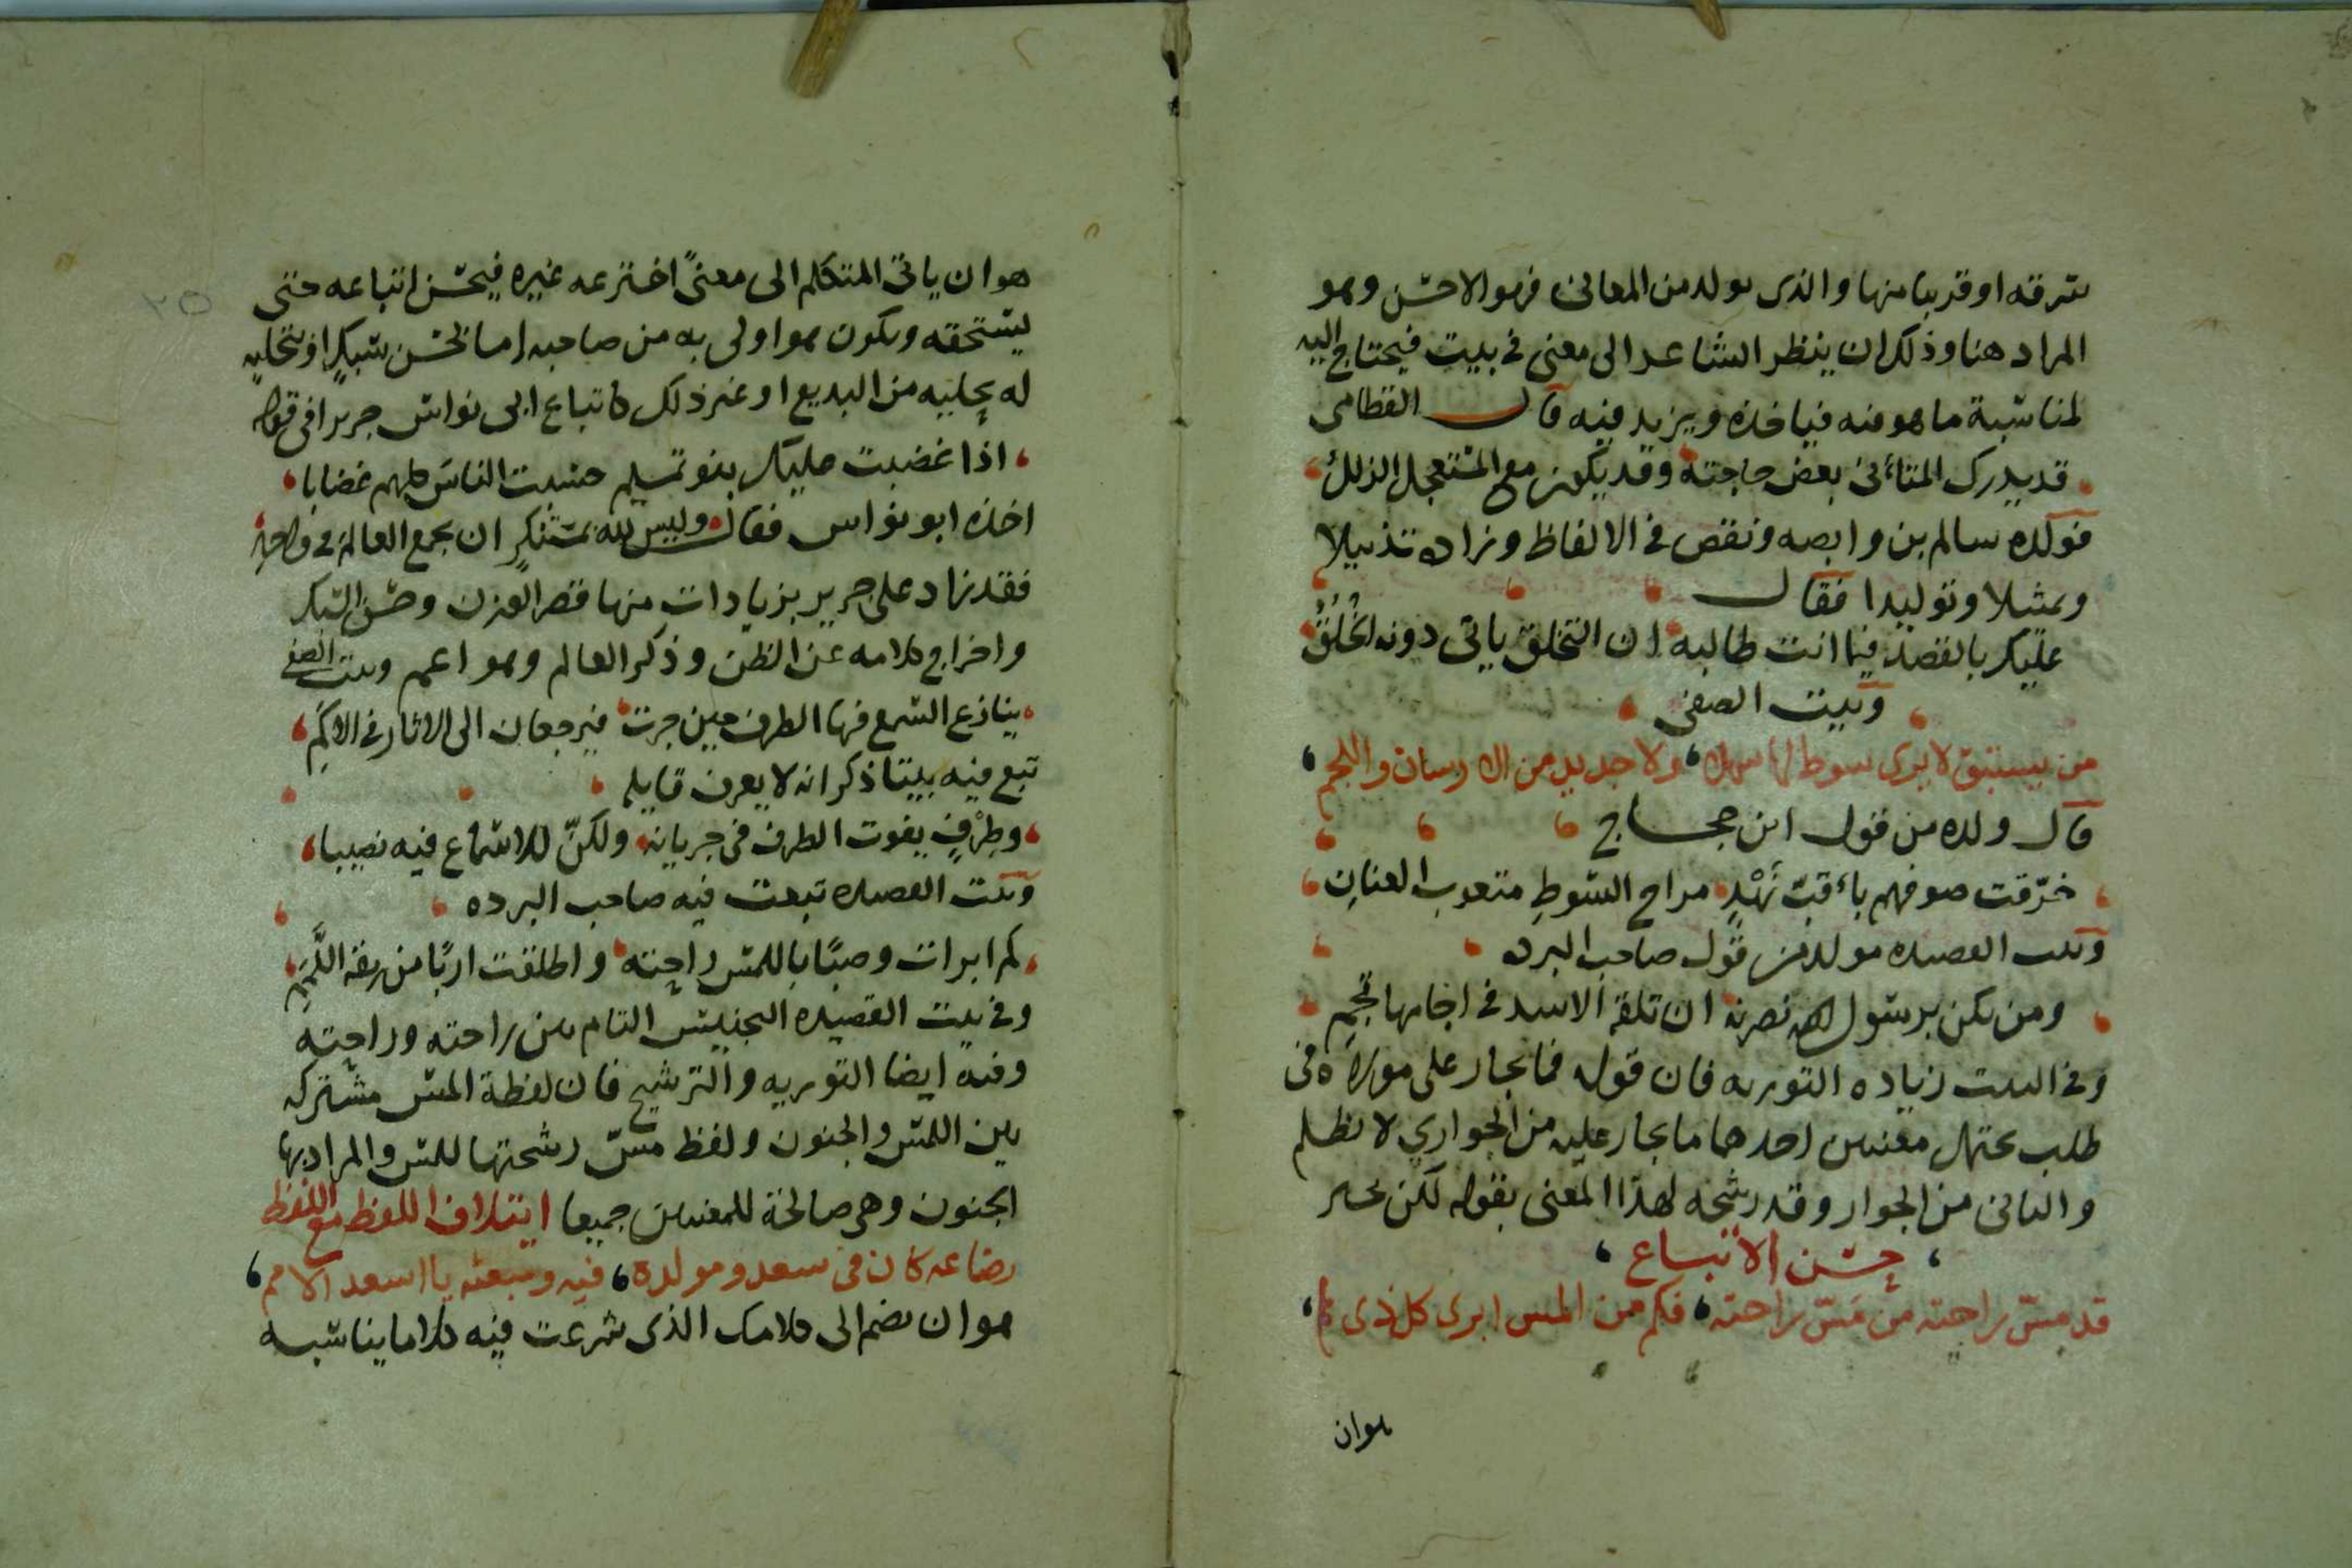 سرقه او قريبا منها والذى يولد من المعانى فهو الاحسن وهو
المراد هنا وذلك ان ينظر الشاعر الى معنى فى بيت فيحتاج اليه
لمناسبة ما هو فيه فياخذه ويزيد فيه قال القطامى
قد يدرك المتأنى بعض حاجته وقد يكون مع المستعجل الزلل
فولده سالم بن وابصه ونقص فى الالفاظ وزاده تذييلا
وتمثيلا وتوليدا فقال
عليك بالقصد فيما انت طالبه ان التخلق ياتى دونه الخُلُقُ
وبيت الصفى
من يستبق لا يرى سوط لها سمل ولا جديد من الارسان واللجم
قال ولده من قول ابن حجاج
خرّقت صفوفهم بأقبّ نَهْدٍ مراح السوطِ متعوب العنانِ
وبيت القصيده مولد من قول صاحب البرده
ومن تكن برسول الله نصرته ان تلقه الاسد فى اجامها تجم
وفى البيت زياده التوريه فان قوله فما يجار على مولاه فى
طلب يحتمل معنيين احدهما ما يجار عليه من الجوارى لا يظلم
والثانى من الجوار وقد رشحه لهذا المعنى بقوله لكن
حسن الاتباع
قد مسّ راحته من مَسّ راحته فكم من المس ابرى كل ذى
هوان
هو ان ياتى المتكلم الى معنىً اخترعه غيره فيحسن اتباعه حتى
يستحقه ويكون هو اولى به من صاحبه اما لحسن سبكٍ او تحليه
له بحليه من البديع او غير ذلك كاتباع ابى نواس جريرا فى قوله
اذا غضبت عليك بنو تميم حسبت الناس كلهم غضابا
اخذه ابو نواس فقال وليس لله بمستنكرٍ ان يجمع العالم فى واحدِ
فقد زاد على جرير بزيادات منها قصر الوزن وحسن السبك
واخراج كلامه عن الظن وذكر العالم وهو اعم وبيت الصفى
ينازع السمع فيها الطرف حين جرت فيرجعان الى الاثار فى الاكمِ
تبع فيه بيتا ذكر انه لا يعرف قايله
وطِرْفٍ يفوت الطرف فى جريانه ولكنّ للاسماع فيه نصيبا
وبيت القصيده تبعت فيه صاحب البرده
كم ابرات وصبًا باللمس راحته واطلقت اربًا من ربقة اللَّمَمِ
وفى بيت القصيده التجنيس التام بين راحته وراحته
وفيه ايضا التوريه والترشيح فان لفظة المس مشتركه
بين اللمس والجنون ولفظ مسّ رشحتها للمس والمراد بها
الجنون وهى صالحة للمعنيين جميعا ايتلاف اللفظ مع اللفظ
رضاعه كان فى سعد ومولده فيه ومبعثه يا اسعد الامم
هو ان يضم الى كلامك الذى شرعت فيه كلاما يناسبه